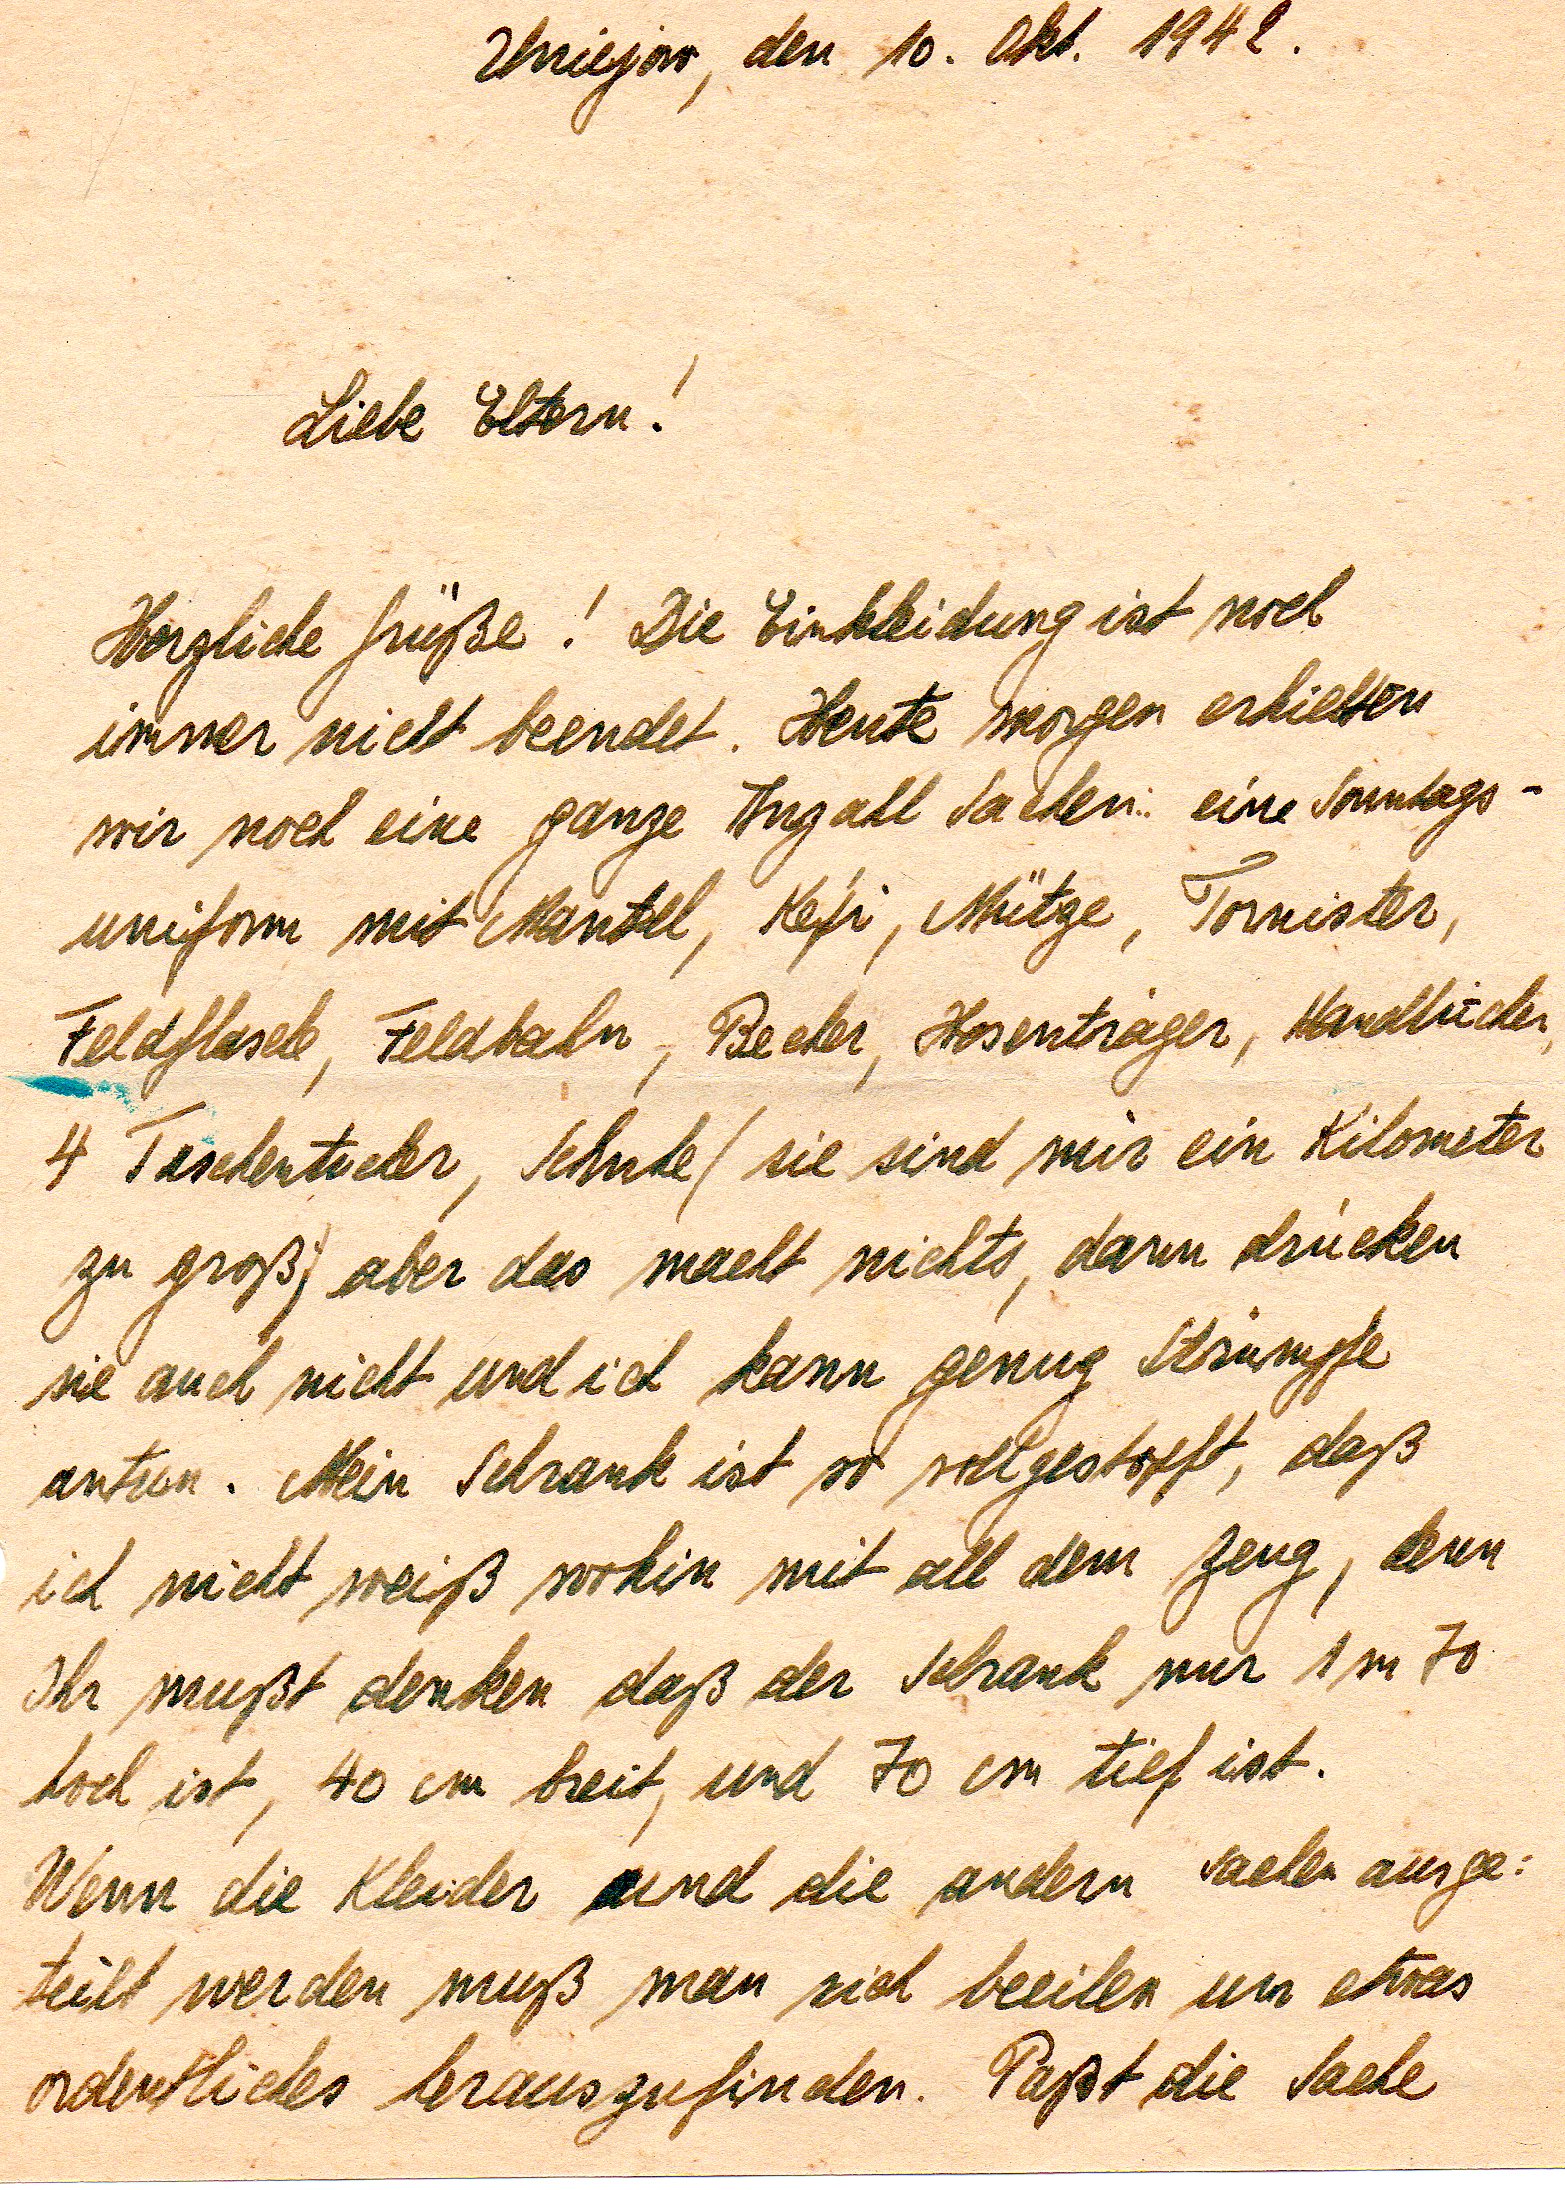 Uniejow, den 10. Okt. 1942.
Liebe Eltern!
Herzliche Grüße! Die Einkleidung ist noch
immer nicht beendet. Heute morgen erhielten
wir noch eine ganze Anzahl Sachen: eine Sonntags-
uniform mit Mantel, Kepi, Mütze, Tornister,
Feldflasche, Feldbahn, Becher, Hosenträger, Handtücher,
4 Taschentücher, Schuhe (sie sind mir ein Kilometer
zu groß) aber das macht nichts, dann drücken
sie auch nicht und ich kann genug Strümpfe
antun. Mein Schrank ist so vollgestopft, daß
ich nicht weiß wohin mit all dem Zeug, denn
Ihr mußt denken daß der Schrank nur 1 m 70
hoch ist, 40 cm breit, und 70 cm tief ist.
Wenn die Kleider und die andern Sachen ausge:
teilt werden muß man sich beeilen um etwas
ordentliches herauszufinden. Paßt die Sache